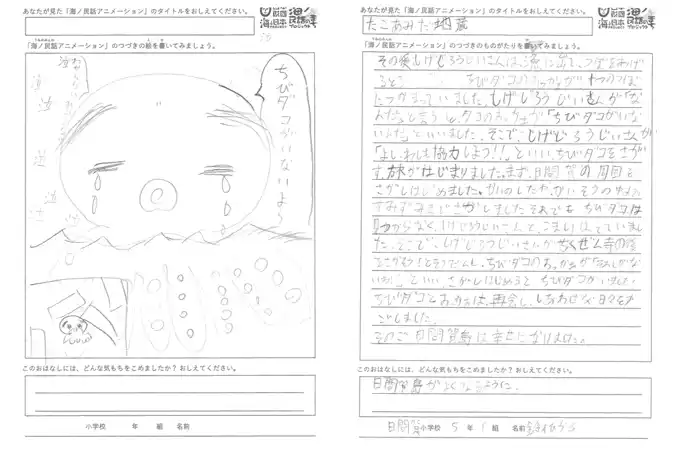 あなたが見た「海ノ民話アニメーション」のタイトルをおしえてください。
海と日本
海ノ民話のまちプロジェクト
「海ノ民話アニメーション」のつづきの絵を書いてみましょう。
ちびダコがいないよう
泣
泣
泣
泣
このおはなしには、どんな気もちをこめましたか？ おしえてください。
小学校 年 組 名前
あなたが見た「海ノ民話アニメーション」のタイトルをおしえてください。
海と日本
海ノ民話のまちプロジェクト
たこあみた地蔵
「海ノ民話アニメーション」のつづきのものがたりを書いてみましょう。
その後しげじろうじいさんは、漁に出て、つぼをあげ
ると ちびダコのおっかあが 1つのつぼ
につかまっていました。しげじろうじいさんが「な
んだ」と言うと、タコのおっかあが「ちびダコがいな
いんだ」といいました。そこで、しげじろうじいさんが
「よし、わしも協力しよう!!」といい、ちびダコをさが
す、旅がはじまりました。まず、日間賀の周囲を
さがしはじめました。
すみずみまでさがしました。それでも ちびダコは
見つからなく、しげじろうじいさんと、こまりはてていまし
た。そこで、しげじろうじいさんが
ちびダコのおっかあが
といい、さがしはじめると ちびダコがいました。
ちびダコとおっかあは、再会し、しあわせな日々をす
ごしました。
そのご 日間賀島は幸せになりました。
このおはなしには、どんな気もちをこめましたか？ おしえてください。
日間賀島がよくなるように。
日間賀小学校 5年 1組 名前